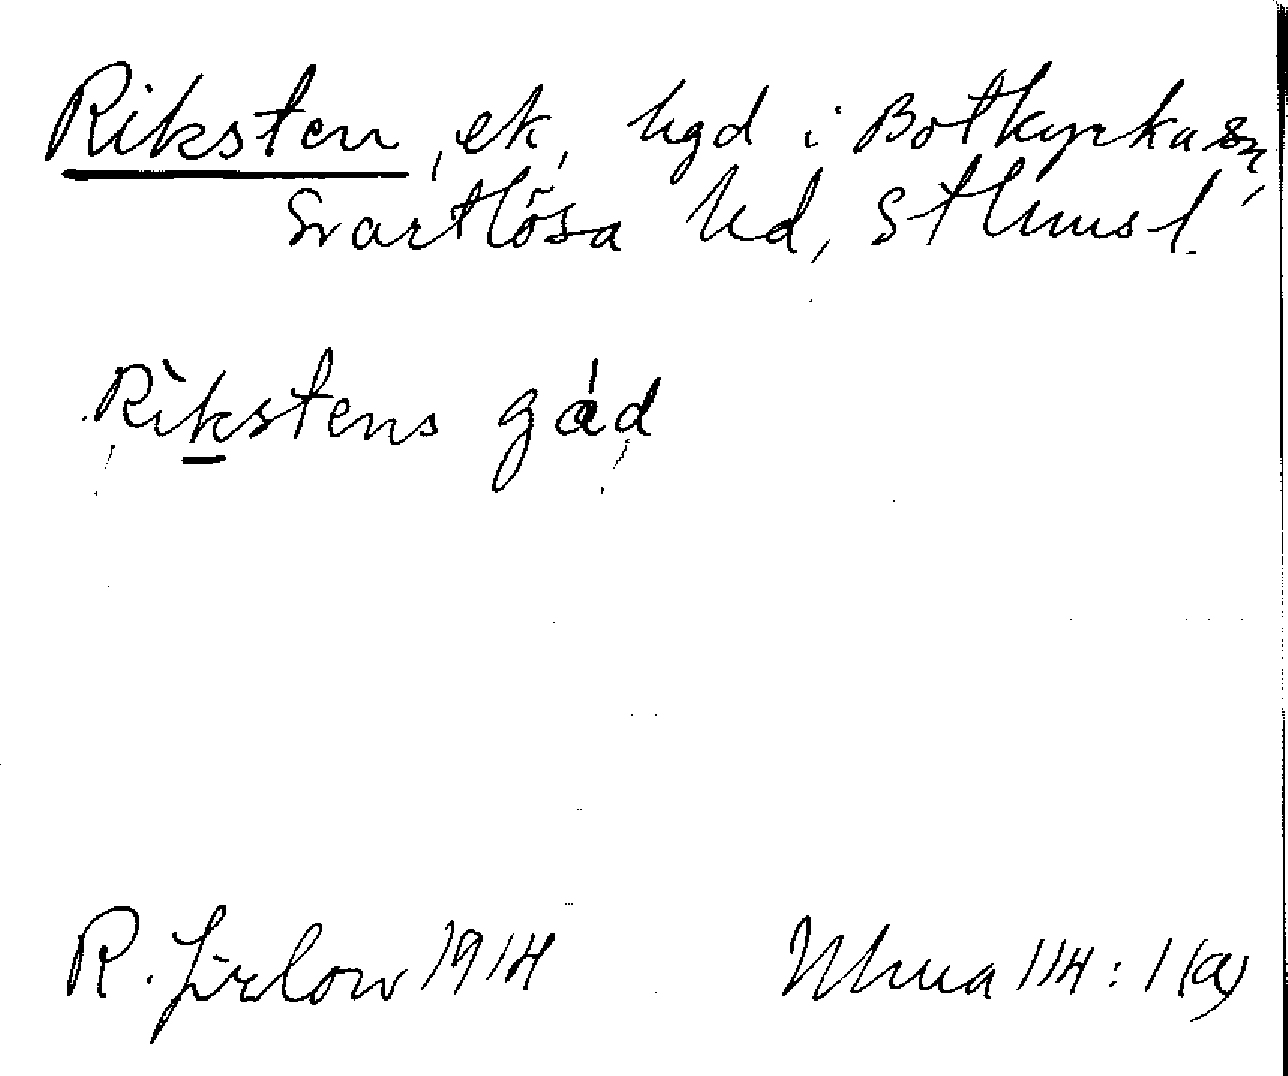 Riksten, ek, hgd i Botkyrka sn,
Svartlösa hd, Sthms l.
Rìkstens gá̀d
R. Jirlow 1914
Uhua 114:1(a)